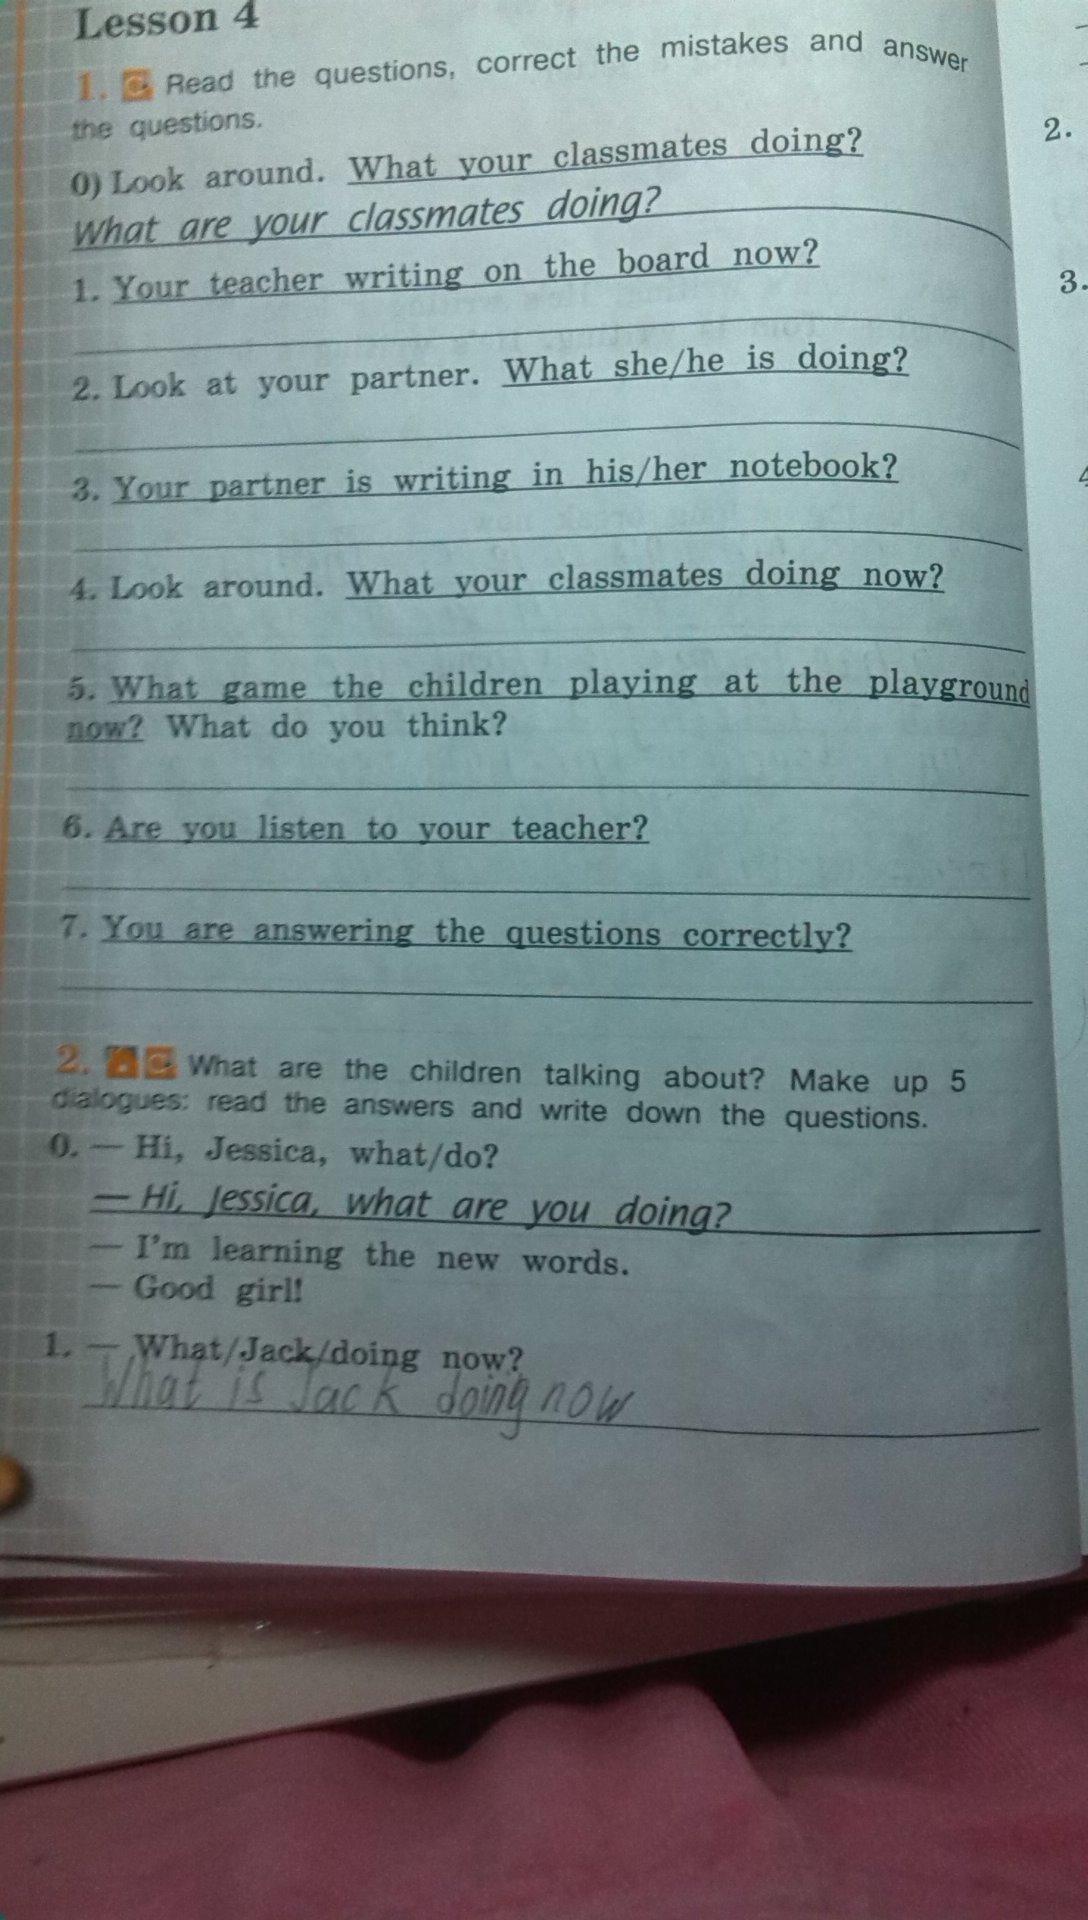 Lesson 4
1. C Read the questions, correct the mistakes and answer
the questions.
0) Look around. What your classmates doing?
What are your classmates doing?
1. Your teacher writing on the board now?
2. Look at your partner. What she/he is doing?
3. Your partner is writing in his/her notebook?
4. Look around. What your classmates doing now?
5. What game the children playing at the playground
now? What do you think?
6. Are you listen to your teacher?
7. You are answering the questions correctly?
2. C What are the children talking about? Make up 5
dialogues: read the answers and write down the questions.
0. — Hi, Jessica, what/do?
— Hi, Jessica, what are you doing?
— I'm learning the new words.
— Good girl!
1. — What/Jack/doing now?
What is Jack doing now
2.
3.